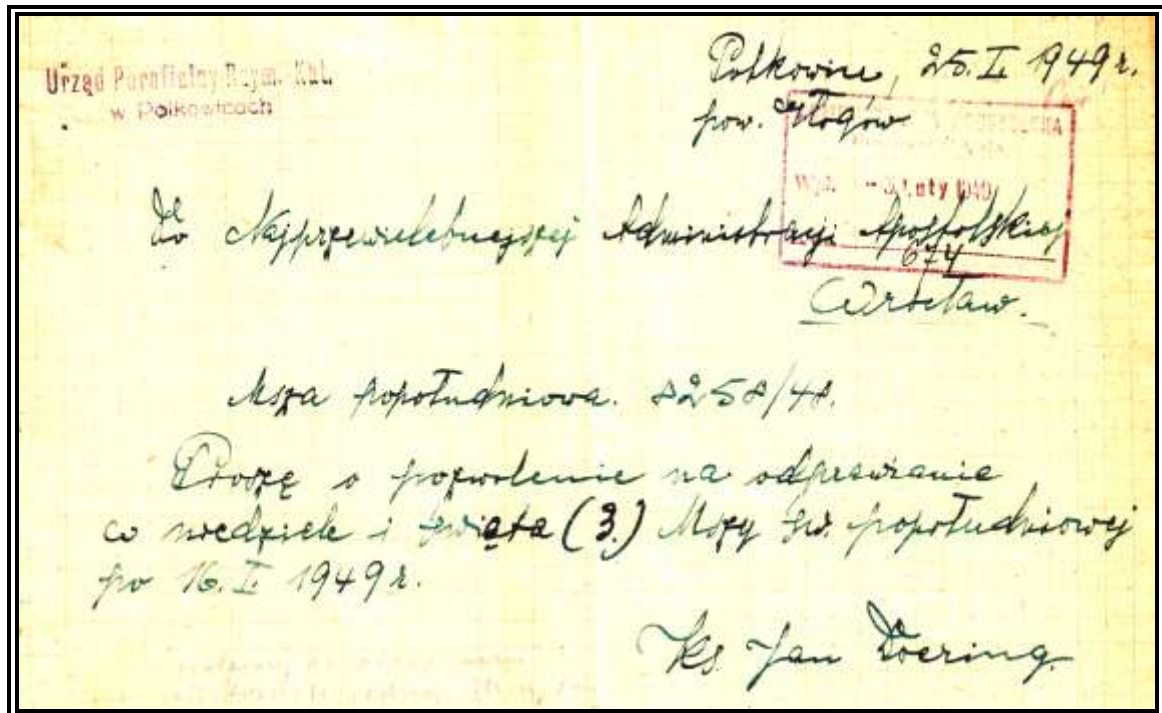 Urząd Parafialny Rzym.-Kat.
w Polkowicach
Polkowice, 25. I. 1949 r.
pow. Głogów
- 3 Luty 1949
Do Najprzewielebniejszej Administracji Apostolskiej
674
Wrocław.
Msza popołudniowa. 8258/48.
Proszę o pozwolenie na odprawianie
w niedziele i święta (3.) Mszy św. popołudniowej
po 16. I. 1949 r.
Ks. Jan Doering.